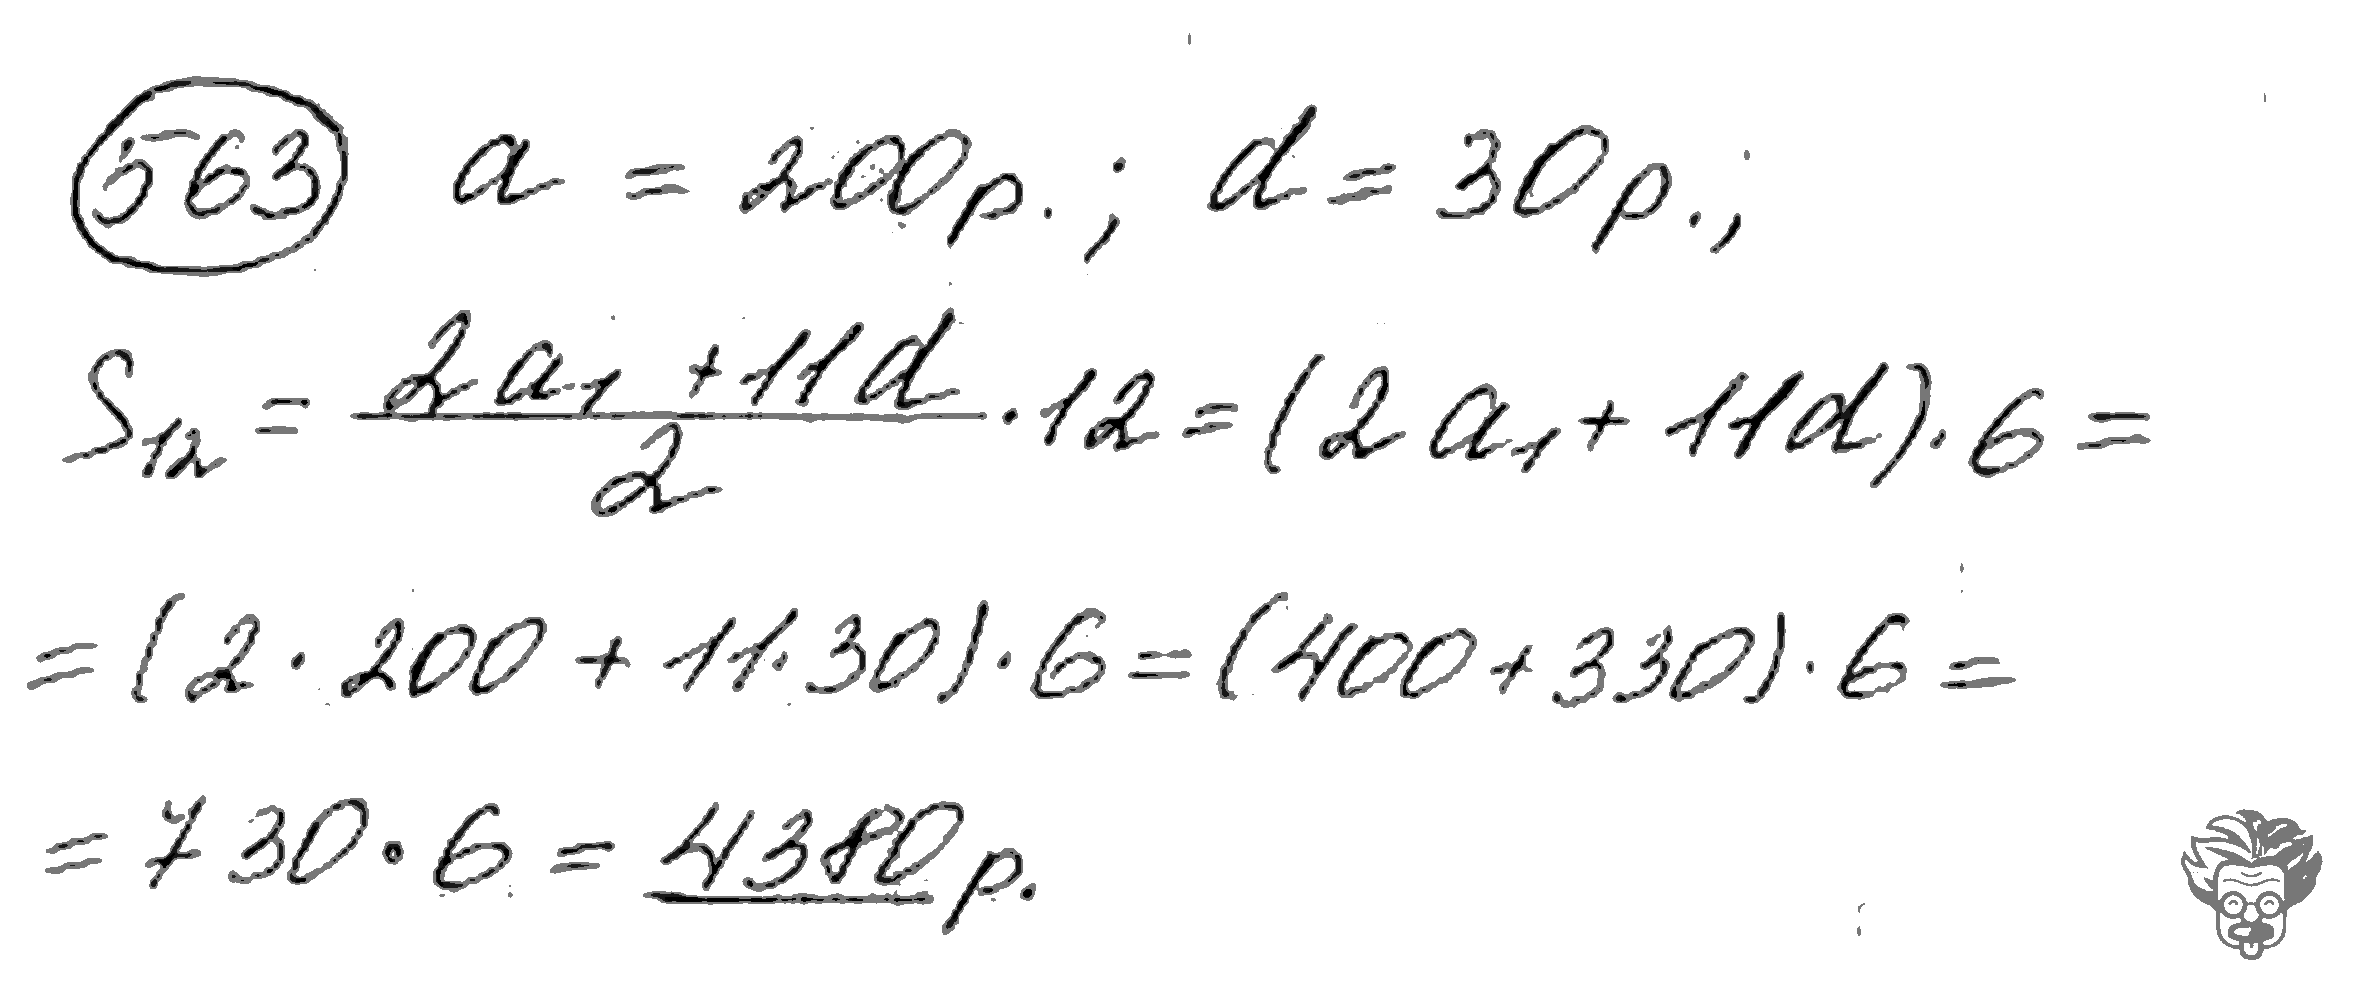 563 a = 200 р. ; d = 30 р. ;
S₁₂ = (2a₁ + 11d)/2 · 12 = (2a₁ + 11d) · 6 =
= (2 · 200 + 11 · 30) · 6 = (400 + 330) · 6 =
= 730 · 6 = 4380 р.